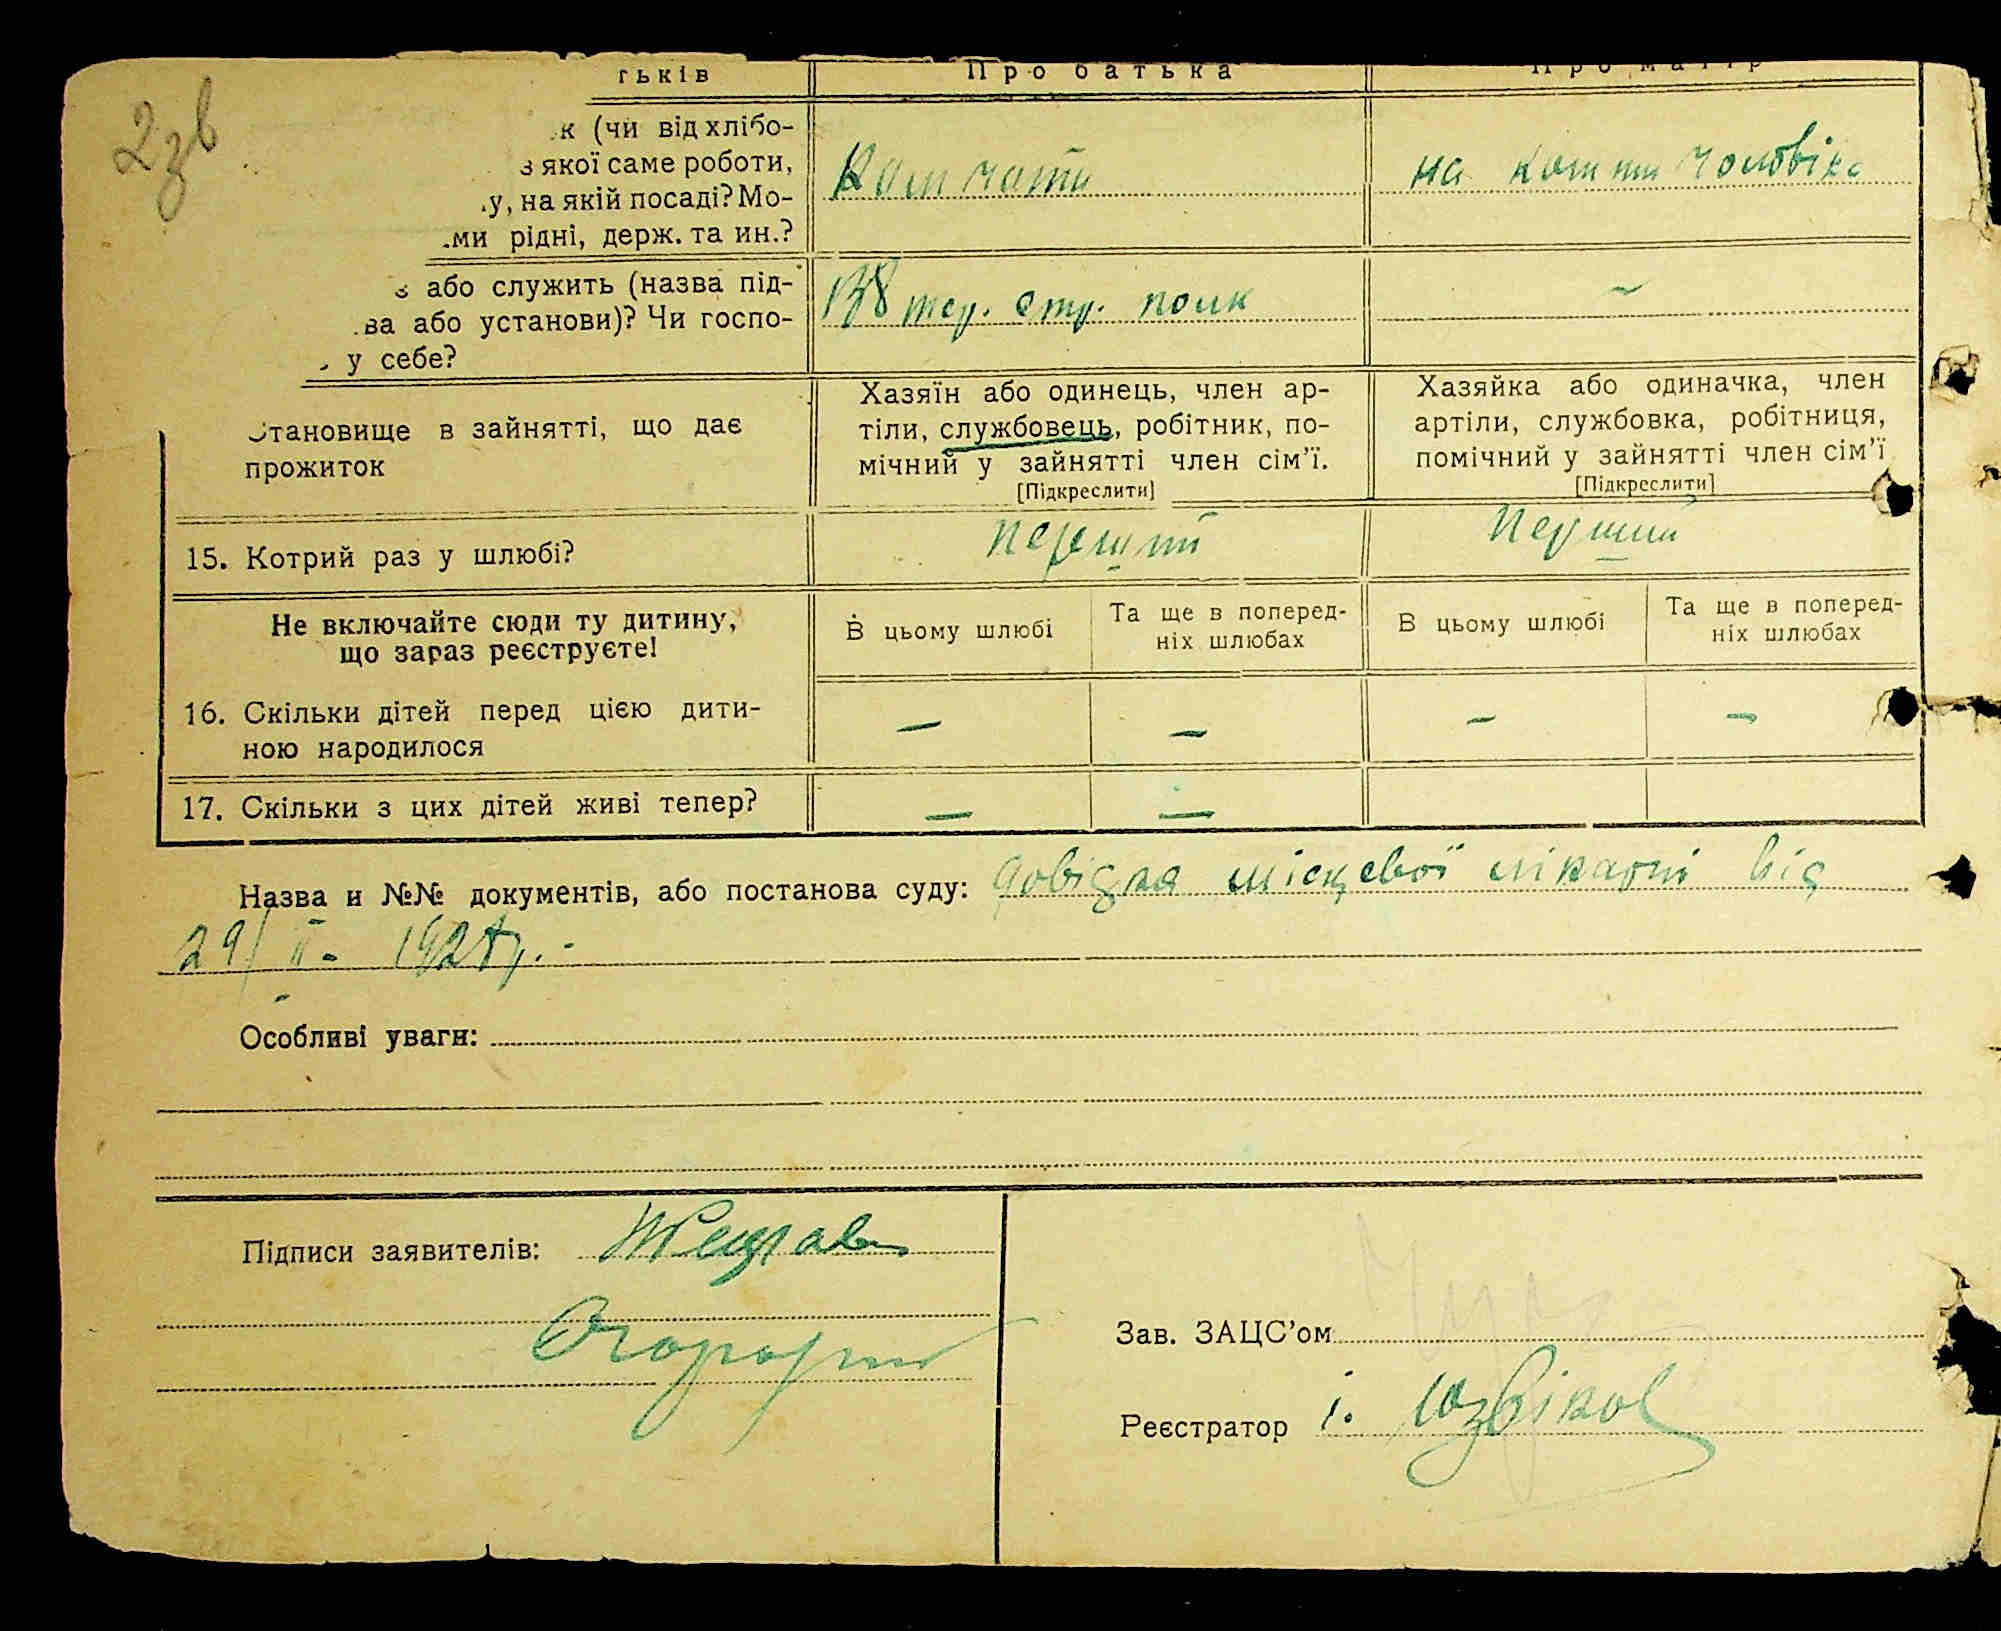 2зв
тьків Про батька Про матір
к (чи від хлібо-
з якої саме роботи,
у, на якій посаді? Мо-
ми рідні, держ. та ин.?
на кошти чоловіка
або служить (назва під-
ва або установи)? Чи госпо-
у себе?
138 тер. стр. полк —
Становище в зайнятті, що дає
прожиток
Хазяїн або одинець, член ар-
тіли, службовець, робітник, по-
мічний у зайнятті член сім'ї.
[Підкреслити]
Хазяйка або одиначка, член
артіли, службовка, робітниця,
помічний у зайнятті член сім'ї
[Підкреслити]
15. Котрий раз у шлюбі? перший перший
Не включайте сюди ту дитину,
що зараз реєструєте!
В цьому шлюбі
Та ще в поперед-
ніх шлюбах
В цьому шлюбі
Та ще в поперед-
ніх шлюбах
16. Скільки дітей перед цією дити-
ною народилося
— — — —
17. Скільки з цих дітей живі тепер? — —
Назва и №№ документів, або постанова суду: довідка місцевої лікарні від
29/II- 1928р.-
Особливі уваги:
Підписи заявителів:
Зав. ЗАЦС'ом
Реєстратор і.